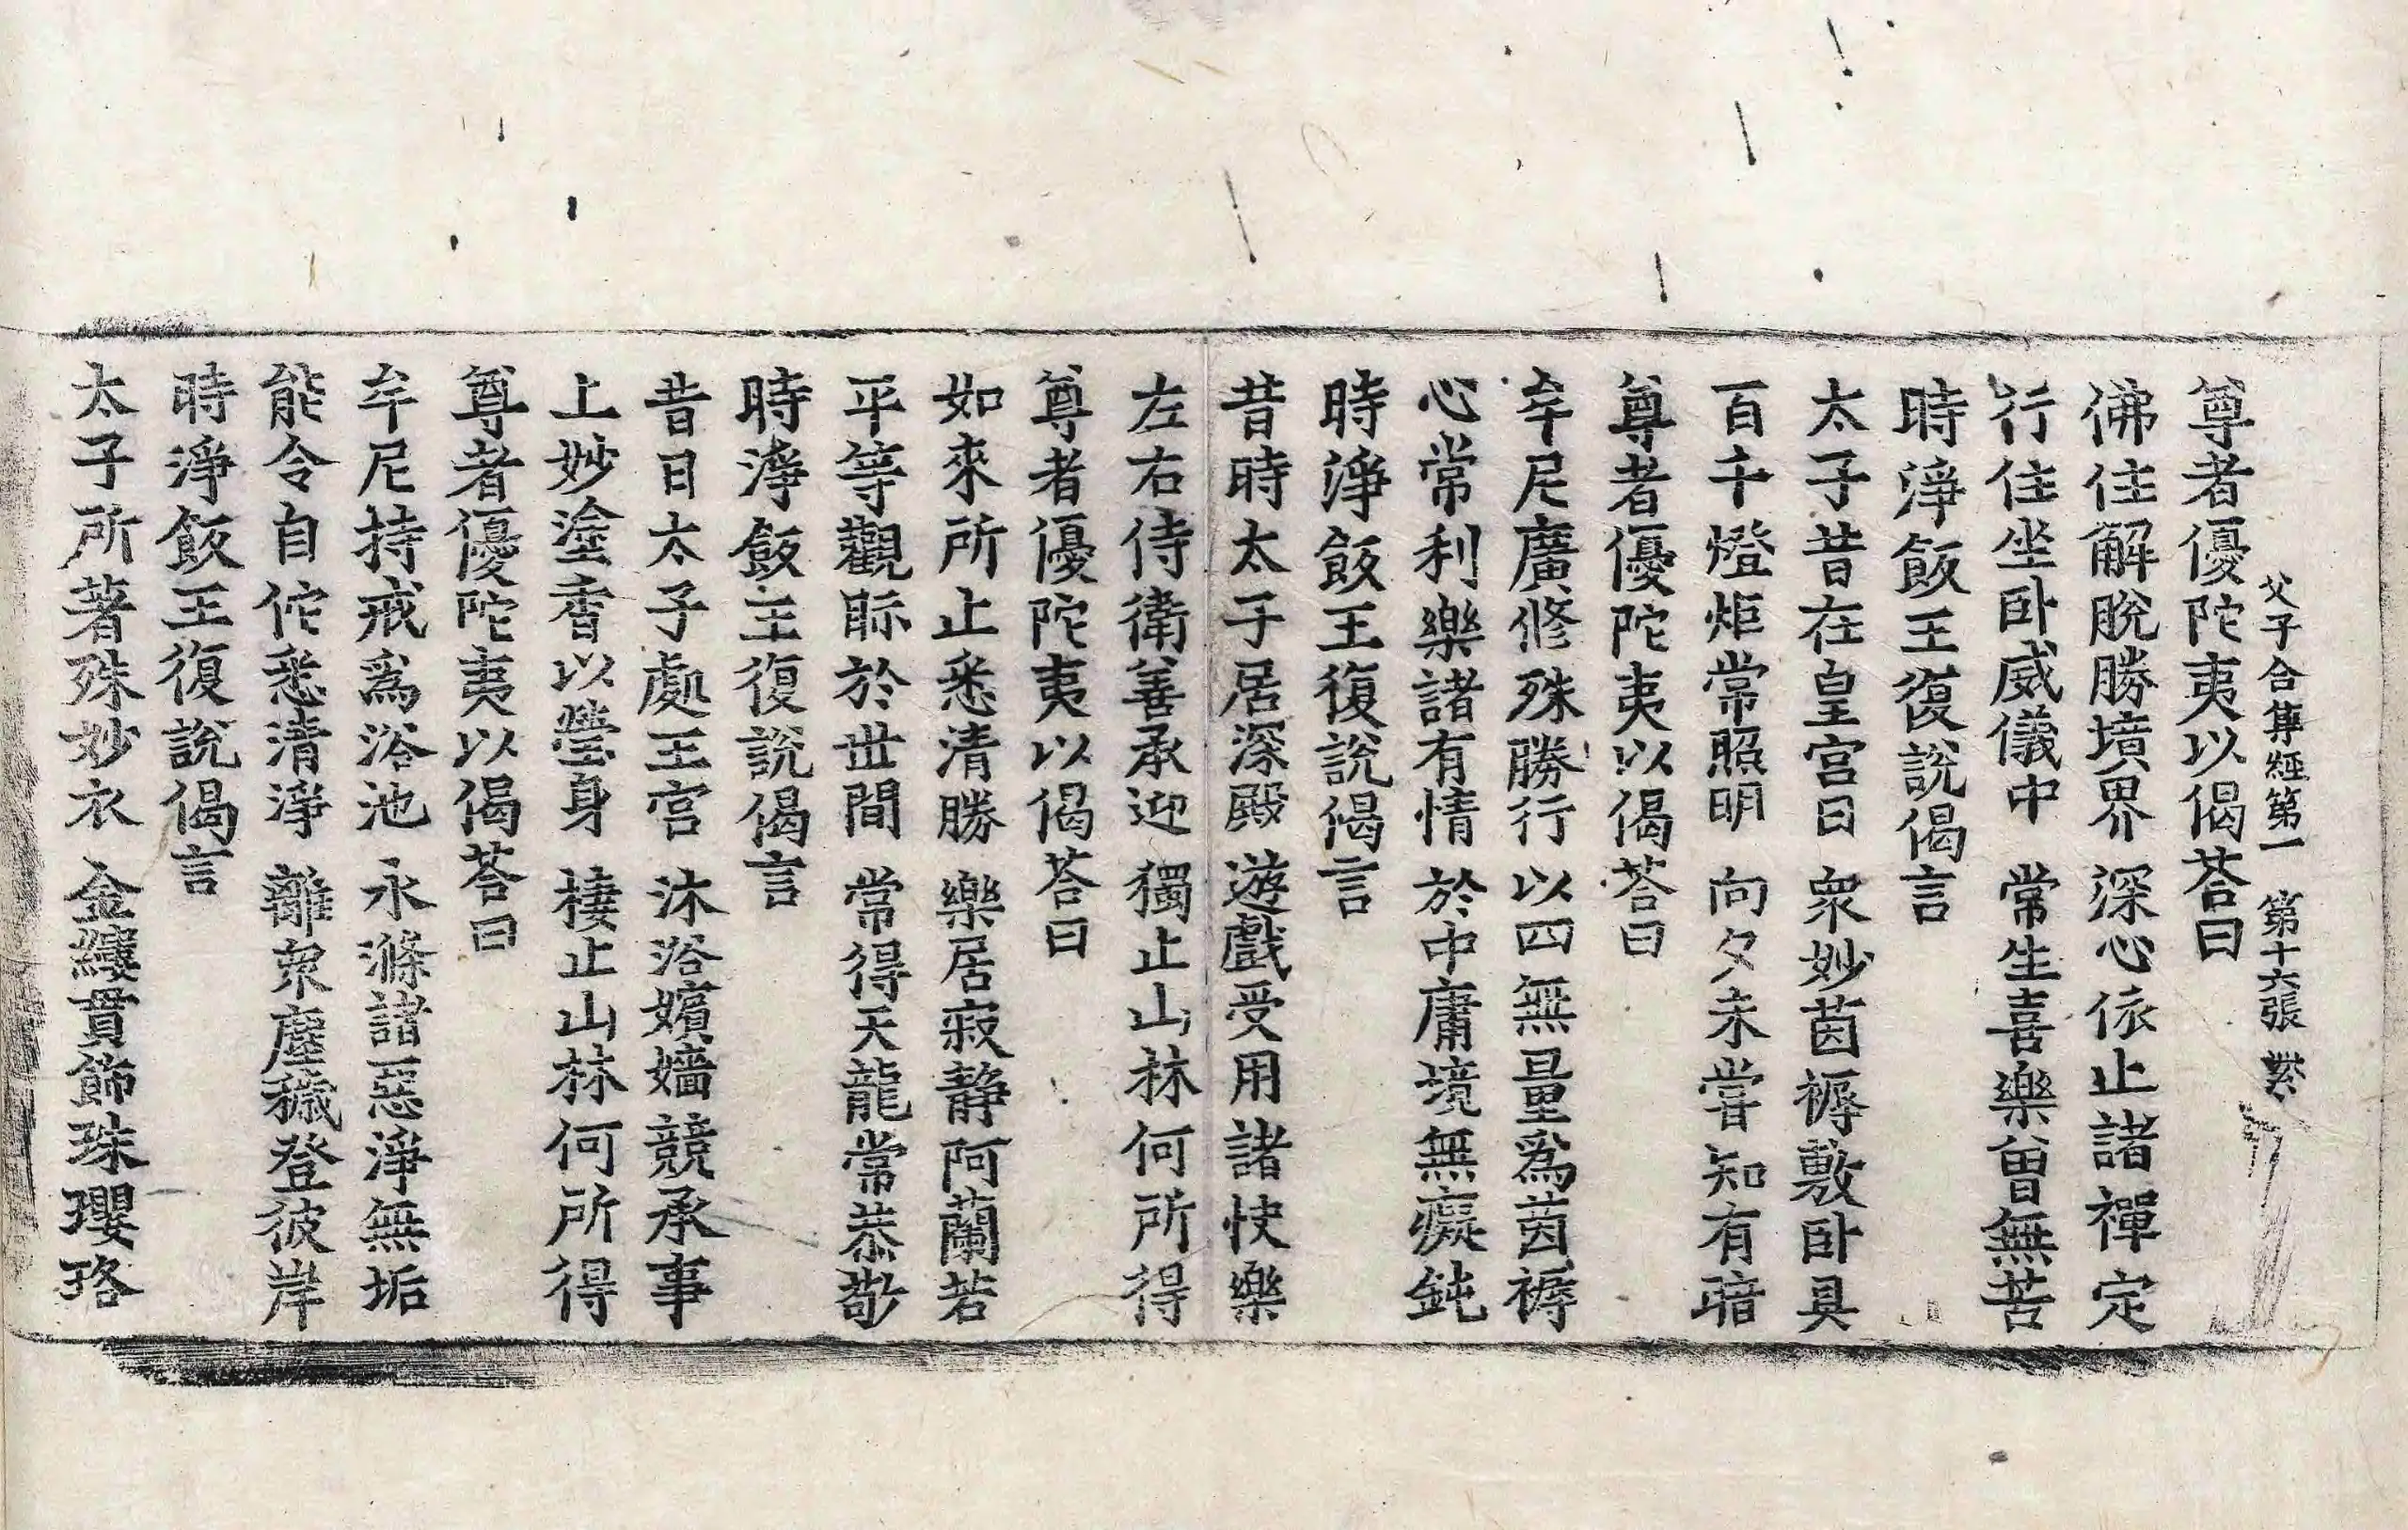 父子合集經第一 第十六張 棐
尊者優陀夷以偈荅曰
佛住解脫勝境界 深心依止諸禪定
行住坐卧威儀中 常生喜樂曾無苦
時淨飯王復說偈言
太子昔在皇宮日 衆妙茵褥敷卧具
百千燈炬常照明 向夕未嘗知有暗
尊者優陀夷以偈荅曰
牟尼廣修殊勝行 以四無量爲茵褥
心常利樂諸有情 於中庸境無癡鈍
時淨飯王復說偈言
昔時太子居深殿 遊戲受用諸快樂
左右侍衛善承迎 獨止山林何所得
尊者優陀夷以偈荅曰
如來所止悉清勝 樂居寂静阿蘭若
平等觀眎於世間 常得天龍常恭敬
時淨飯王復說偈言
昔日太子處王宮 沐浴嬪嬙競承事
上妙塗香以瑩身 棲止山林何所得
尊者優陀夷以偈荅曰
牟尼持戒爲浴池 永滌諸惡淨無垢
能令自佗悉清淨 離衆塵穢登彼岸
時淨飯王復說偈言
太子所著殊妙衣 金縷貫飾珠瓔珞